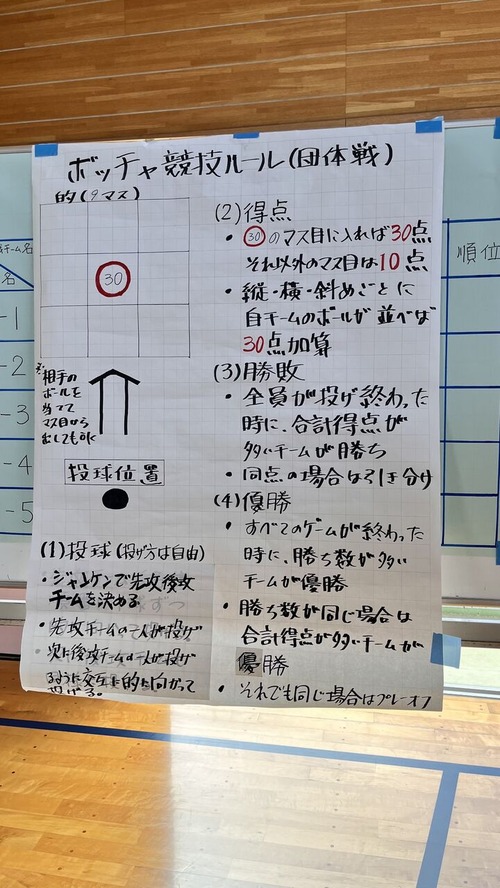 ボッチャ競技ルール(団体戦)
的(9マス)
30
※相手の
ボールを
当てて
マス目から
出しても可
投球位置
(1)投球(投げ方は自由)
・ジャンケンで先攻後攻
チームを決める
・先攻チームの一人が投げ
次に後攻チームの一人が投げ
るように交互に的に向かって
投げる。
(2)得点
・30のマス目に入れば30点
それ以外のマス目は10点
・縦・横・斜めごとに
自チームのボールが並べば
30点加算
(3)勝敗
・全員が投げ終わった
時に、合計得点が
多いチームが勝ち
・同点の場合は引き分け
(4)優勝
・すべてのゲームが終わった
時に、勝ち数が多い
チームが優勝
・勝ち数が同じ場合は
合計得点が多いチームが
優勝
・それでも同じ場合はプレーオフ
チーム名
名
-1
-2
-3
-4
-5
順位